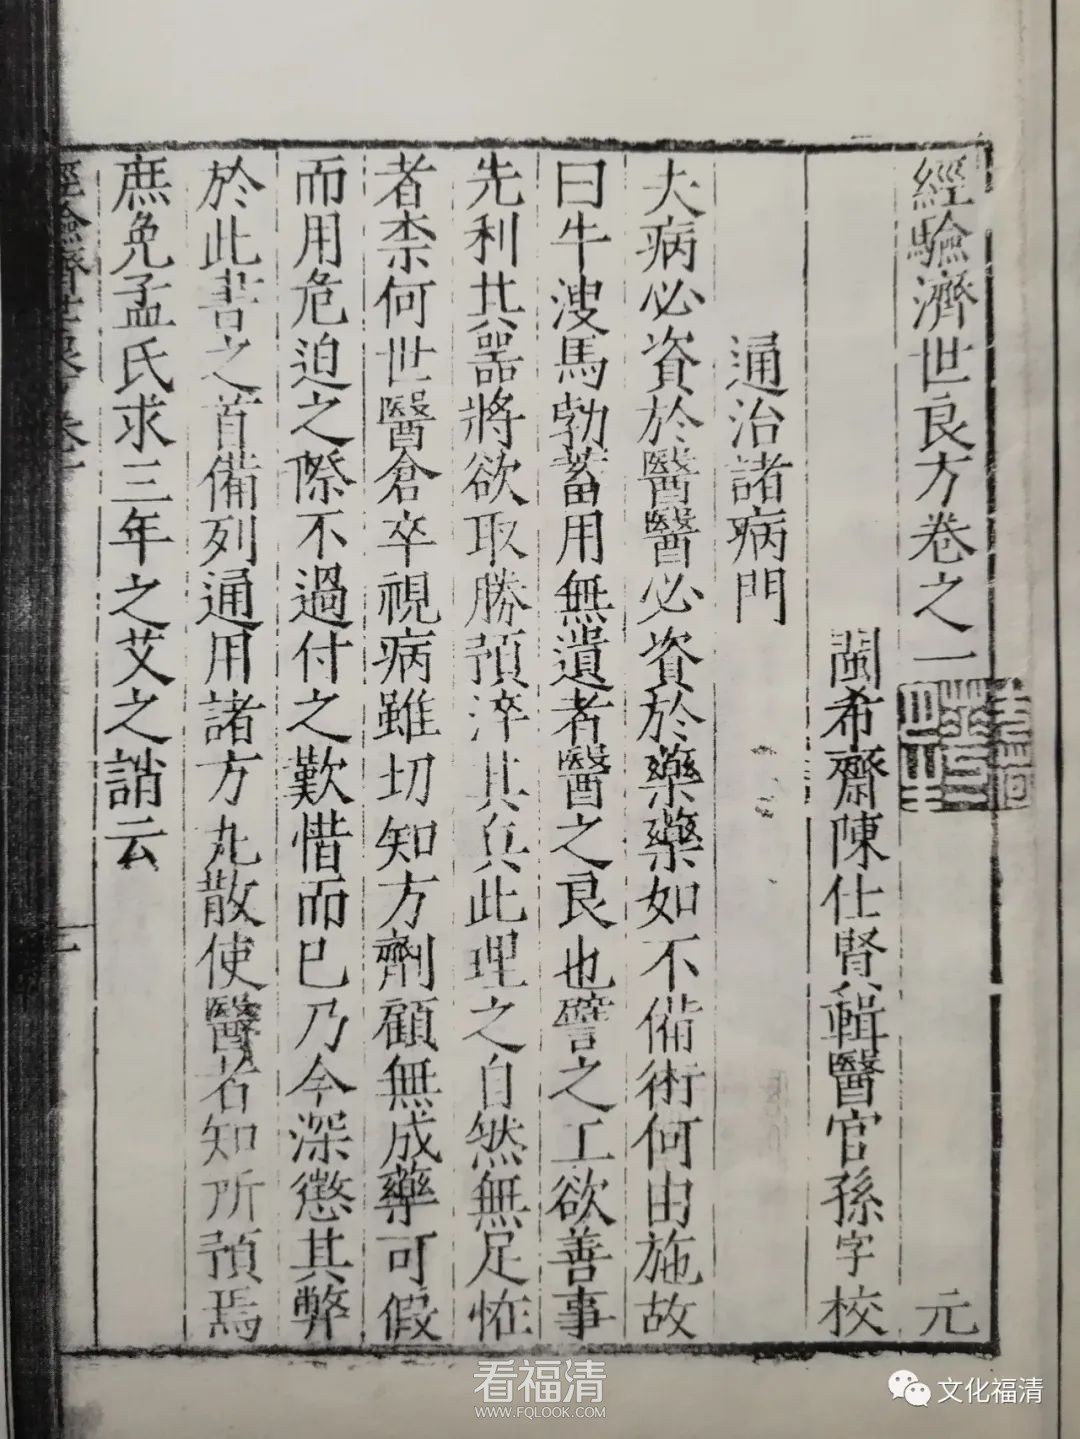 經驗濟世良方卷之一 元
閩希齋陳仕賢輯醫官孫字校
通治諸病門
夫病必資於醫醫必資於藥藥如不備術何由施故
曰牛溲馬勃蓄用無遺者醫之良也譬之工欲善事
先利其器將欲取勝預淬其兵此理之自然無足怪
者柰何世醫倉卒視病雖切知方劑顧無成藥可假
而用危迫之際不過付之歎惜而已乃今深懲其弊
於此書之首備列通用諸方丸散使醫者知所預焉
庶免孟氏求三年之艾之誚云
經驗濟世良方 卷一
看福清
WWW.FQLOOK.COM
文化福清